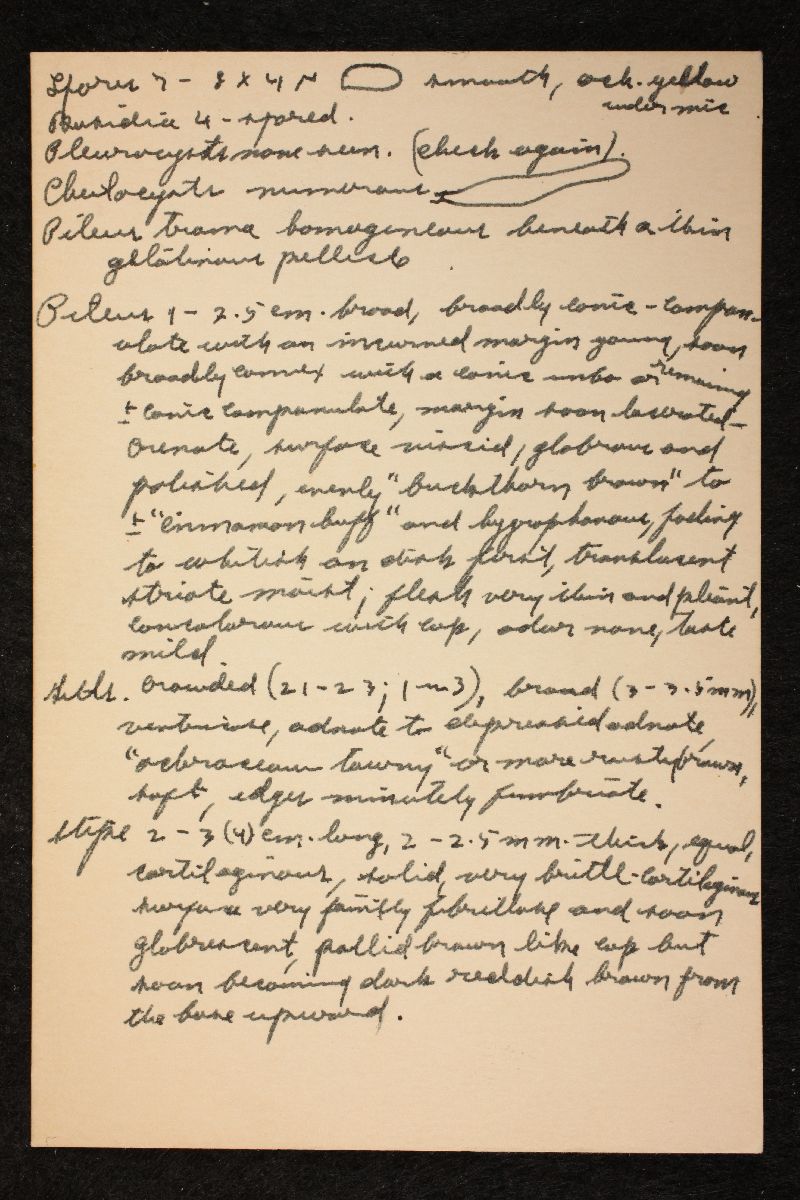 Spores 7 - 8 X 4 µ smooth, och. yellow
under mic
Basidia 4 - spored.
Pleurocysts none seen. (check again).
Cheilocysts numerous
Pileus trama homogeneous beneath a thin
gelatinous pellicle
Pileus 1 - 2.5 cm. broad, broadly conic - campan-
ulate with an incurved margin young, soon
broadly convex with a conic umbo or remaining
± conic campanulate, margin soon lacerated-
crenate, surface viscid, glabrous and
polished, evenly "buckthorn brown" to
± "cinnamon buff" and hygrophanous, fading
to whitish on disk first, translucent
striate moist; flesh very thin and pliant,
concolorous with cap, odor none, taste
mild
Gills. crowded (21 - 23; 1 - 3), broad (3 - 3.5 mm),
ventricose, adnate to depressed adnate,
"ochraceous tawny" or more rusty brown,
soft, edges minutely fimbriate.
Stipe 2 - 3 (4) cm. long, 2 - 2.5 mm. thick, equal,
cartilaginous, solid, very brittle-cartilaginous
surface very faintly fibrillose and soon
glabrescent, pallid brown like cap but
soon becoming dark reddish brown from
the base upward.